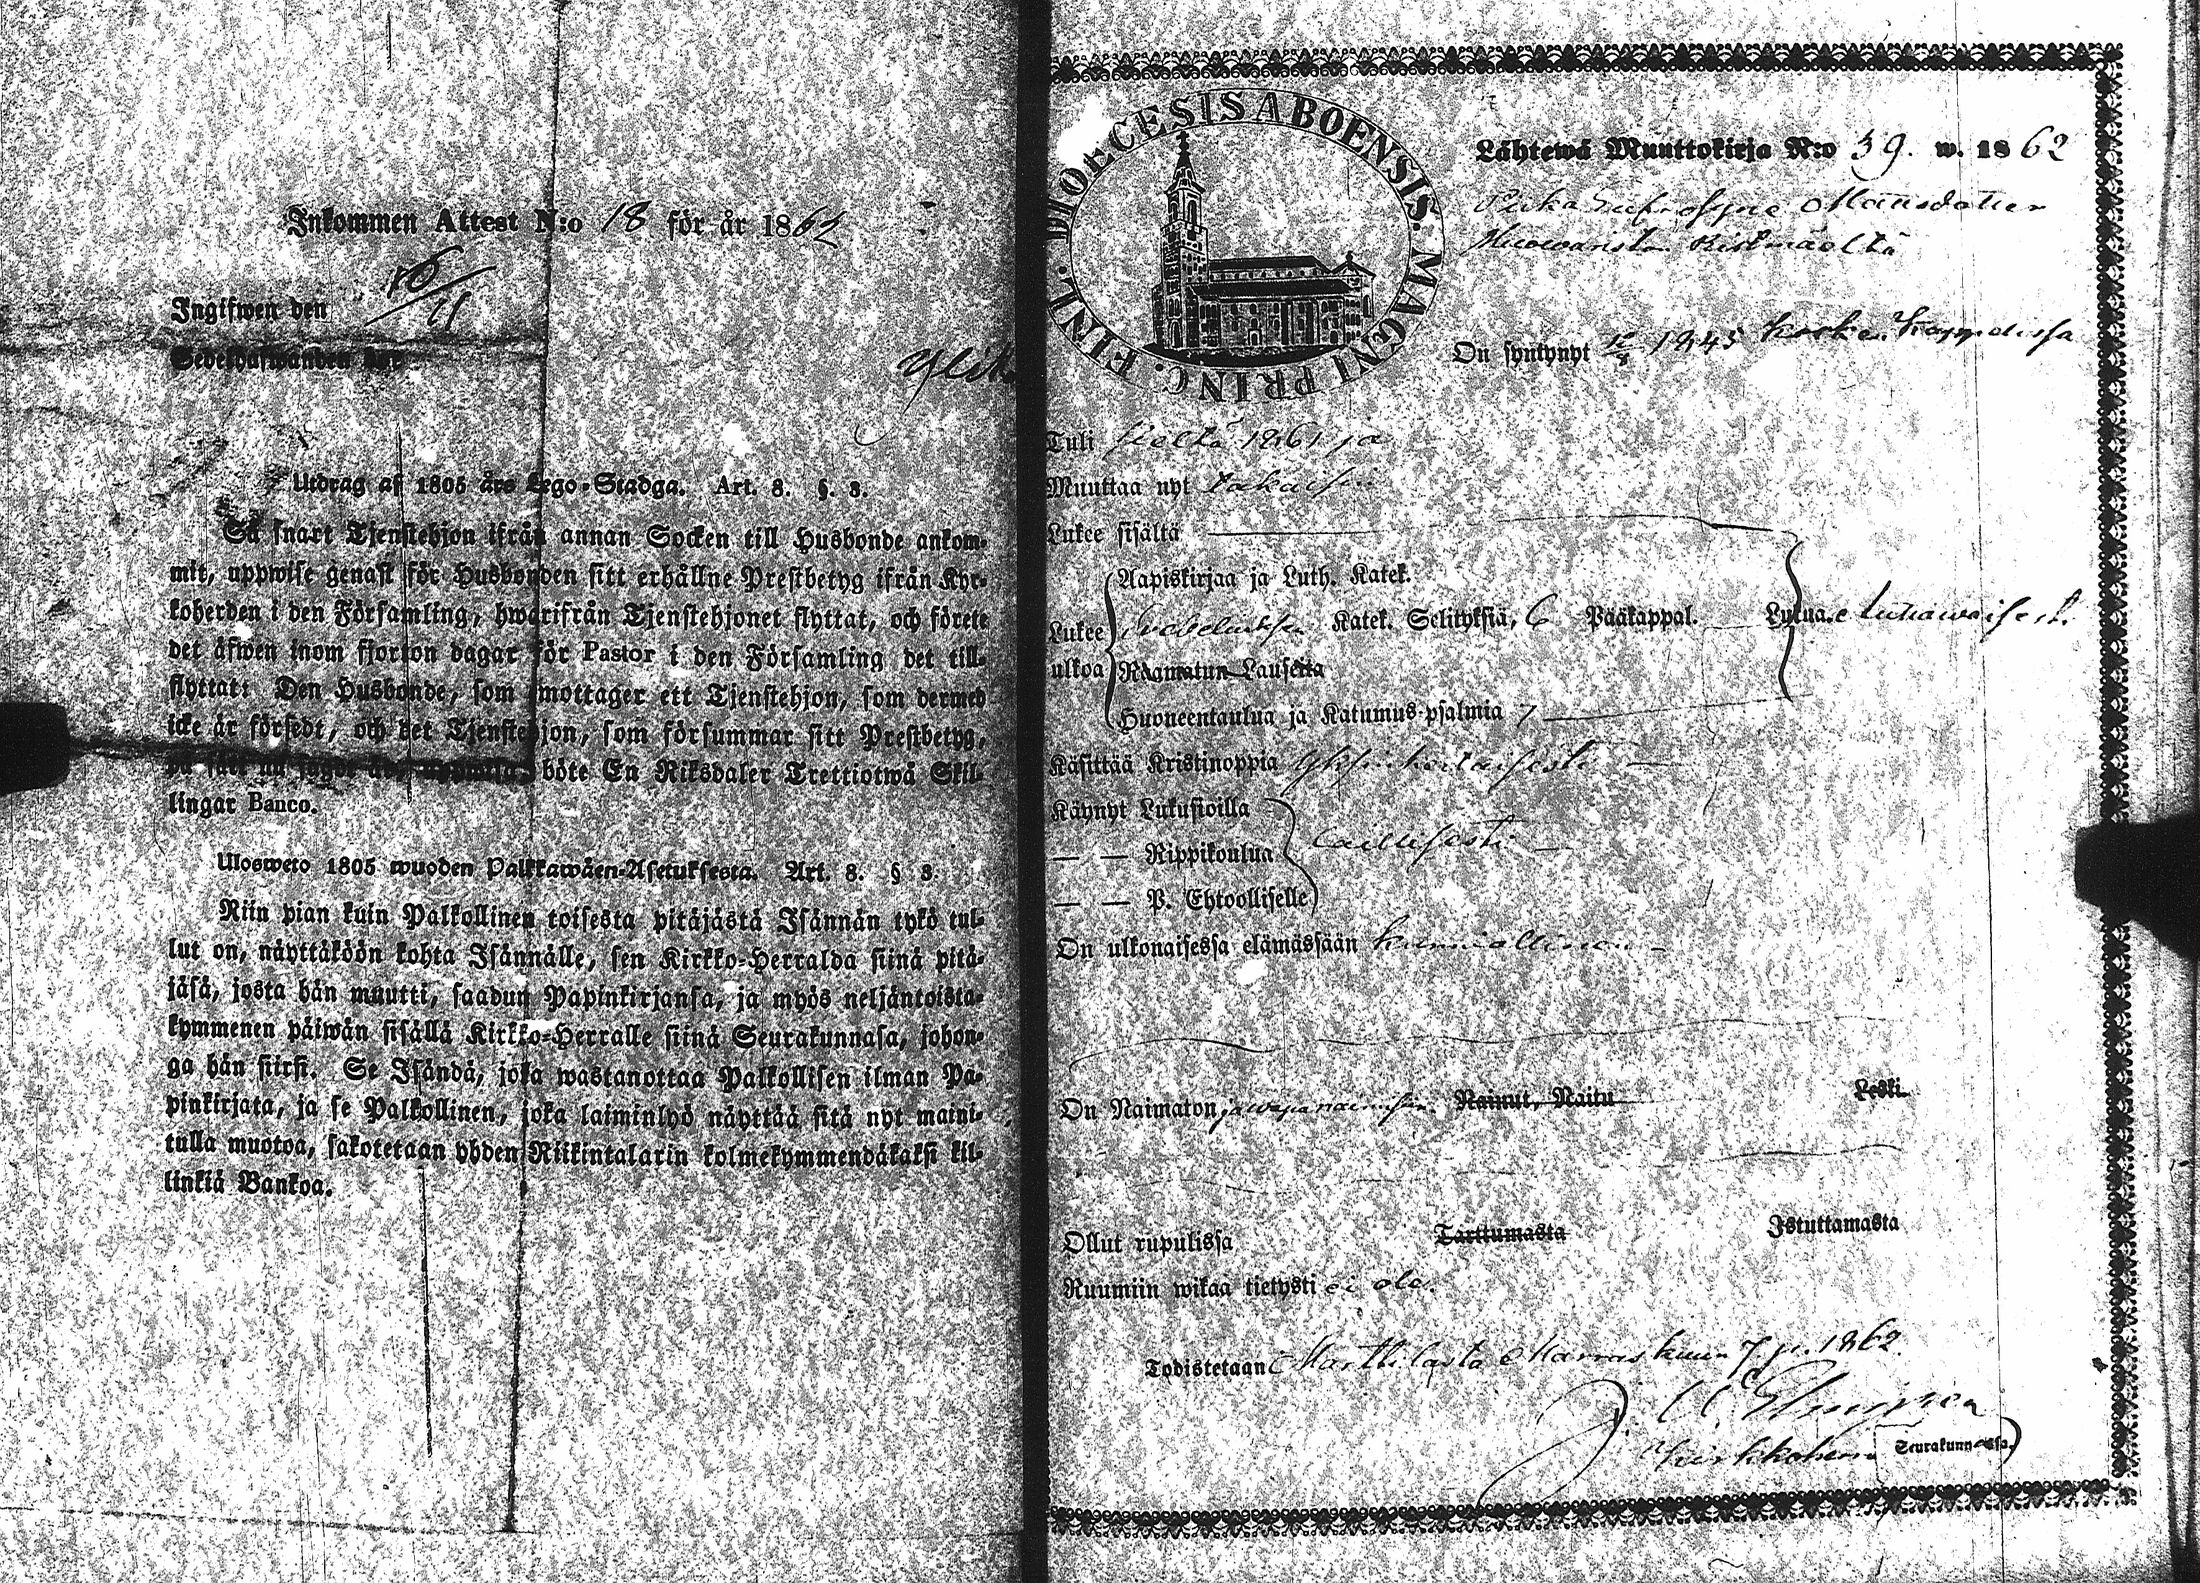 Inkommen Attest N:o 18 för år 1862
Ingifwen den 10/11
Sedelhafwanden
Utdrag af 1805 års Lego-Stadga. Art. 8. §. 3.
Så snart Tjenstehjon ifrån annan Socken till Husbonde ankom-
mit, uppwise genast för Husbonden sitt erhållne Prestbetyg ifrån Kyr-
koherden i den Församling, hwarifrån Tjenstehjonet flyttat, och förete
det äfwen inom fjorton dagar för Pastor i den Församling det till-
flyttat: Den Husbonde, som emottager ett Tjenstehjon, som dermed
icke är försedt, och det Tjenstehjon, som försummar sitt Prestbetyg,
på sätt nu sagdt är, uppwisa, böte En Riksdaler Trettiotwå Skil-
lingar Banco.
Ulosweto 1805 wuoden Palkkawäen-Asetuksesta. Art. 8. § 3.
Niin pian kuin Palkollinen toisesta pitäjästä Isännän tykö tul-
lut on, näyttäköön kohta Isännälle, sen Kirkko-Herralda siinä pitä-
jäsä, josta hän muutti, saadun Papinkirjansa, ja myös neljäntoista-
kymmenen päiwän sisällä Kirkko-Herralle siinä Seurakunnasa, johon-
ga hän siirsi. Se Isändä, joka wastanottaa Palkollisen ilman Pa-
pinkirjata, ja se Palkollinen, joka laiminlyö näyttää sitä nyt maini-
tulla muotoa, sakotetaan yhden Riikintalarin kolmekymmendäkaksi kil-
linkiä Bankoa.
DIOECESIS ABOENSIS. MAGNI PRINC. FINL.
Lähtewä Muuttokirja N:o 39. w. 1862
Piika Eufrosyne Mattsdotter
On syntynyt 1845 Kosken Kappelissa
Tuli sieltä 1861 ja
Muuttaa nyt takaisin
Lukee sisältä
Aapiskirjaa ja Luth. Katek.
Lukee Svebeliuksen Katek. Selityksiä, 6 Pääkappal. Lukua.
ulkoa Raamatun Lauseita
Huoneentaulua ja Katumus-psalmia 7
Käsittää Kristinoppia yksinkertaisesti
Käynyt Lukusioilla
— — Rippikoulua laillisesti
— — P. Ehtoolliselle
On ulkonaisessa elämässään kunniallinen
On Naimaton, ja wapa naimisen Nainut, Naitu Leski.
Ollut rupulissa Tarttumasta Istuttamasta
Ruumiin wikaa tietysti ei ole.
Todistetaan Marttilasta Marraskuun 7 p. 1862.
Kirkkoherra Seurakunnassa.